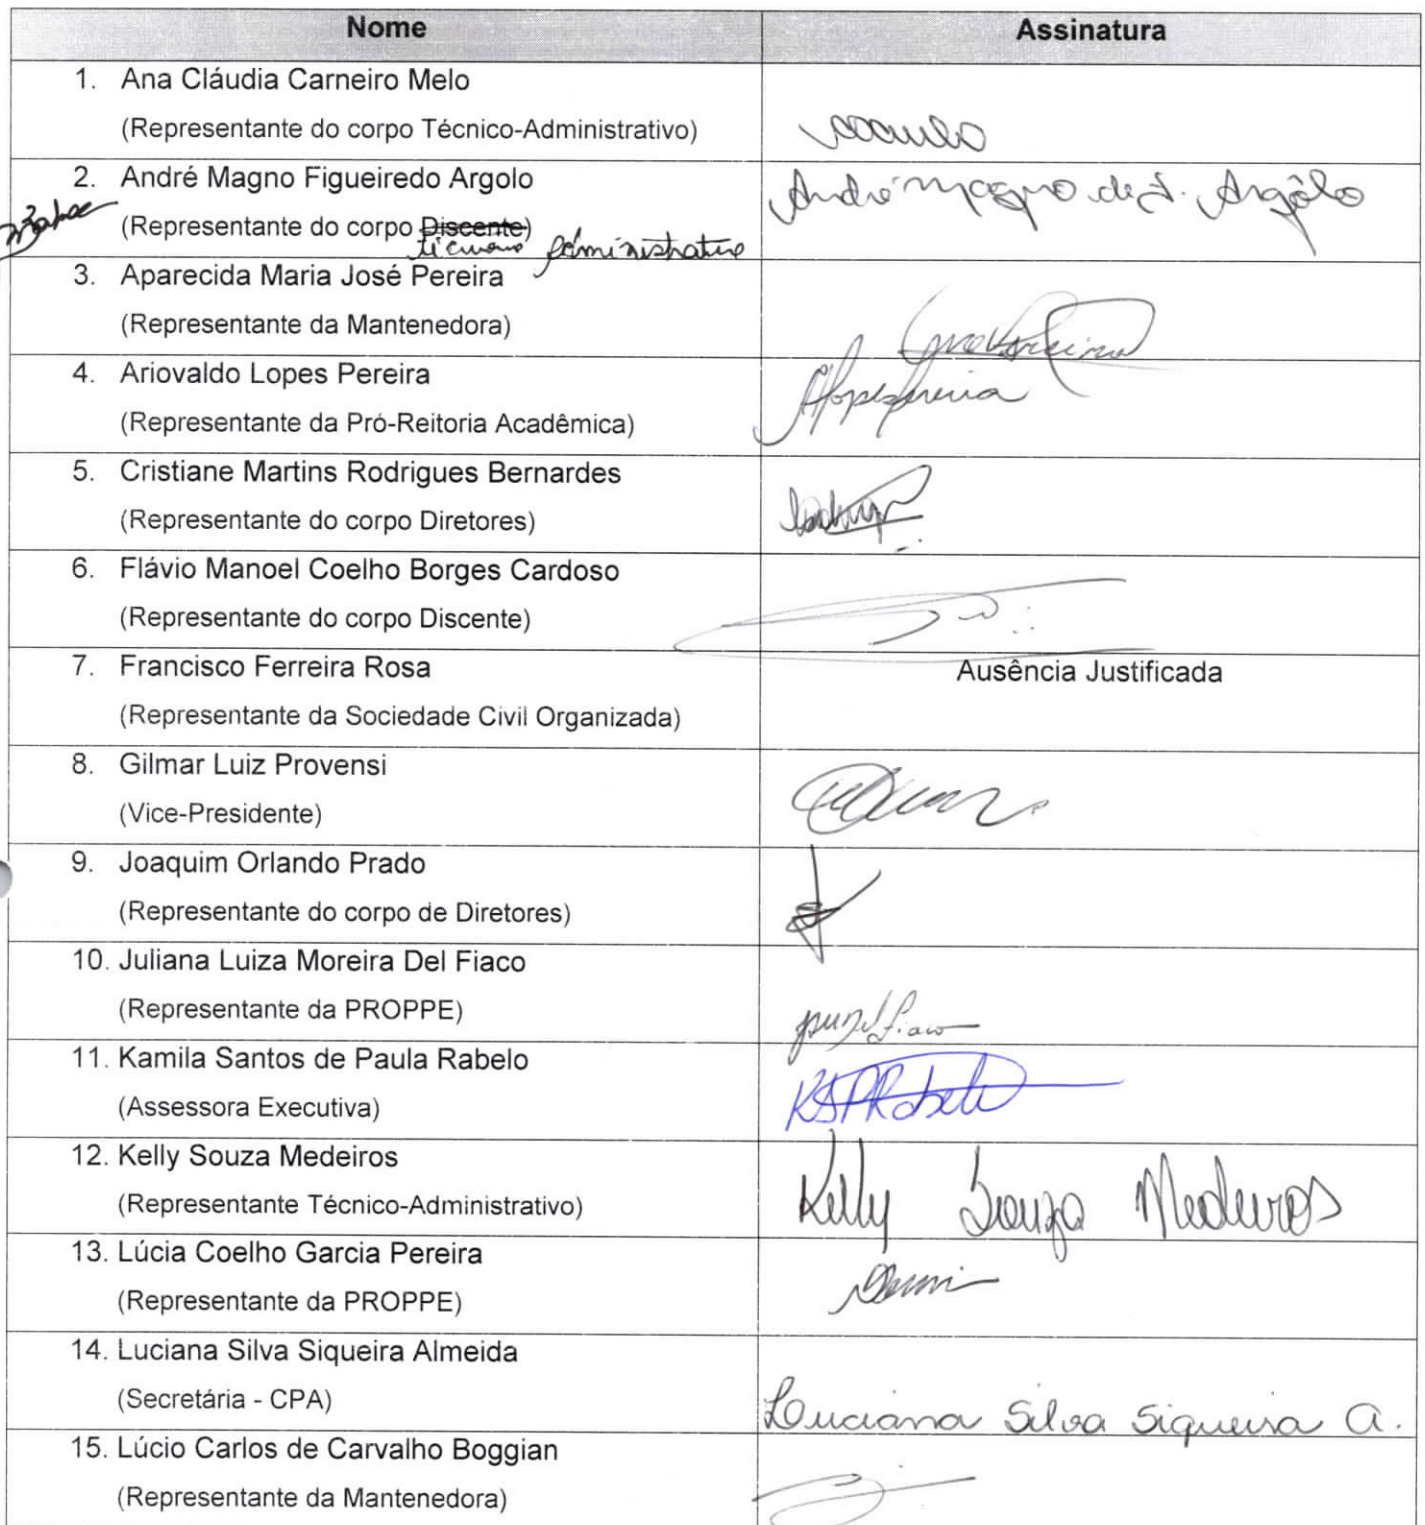 Nome
Assinatura
1. Ana Cláudia Carneiro Melo
(Representante do corpo Técnico-Administrativo)
2. André Magno Figueiredo Argolo
André Magno de F. Argôlo
(Representante do corpo Discente)
técnico administrativo
3. Aparecida Maria José Pereira
(Representante da Mantenedora)
4. Ariovaldo Lopes Pereira
(Representante da Pró-Reitoria Acadêmica)
5. Cristiane Martins Rodrigues Bernardes
(Representante do corpo Diretores)
6. Flávio Manoel Coelho Borges Cardoso
(Representante do corpo Discente)
7. Francisco Ferreira Rosa
Ausência Justificada
(Representante da Sociedade Civil Organizada)
8. Gilmar Luiz Provensi
(Vice-Presidente)
9. Joaquim Orlando Prado
(Representante do corpo de Diretores)
10. Juliana Luiza Moreira Del Fiaco
(Representante da PROPPE)
11. Kamila Santos de Paula Rabelo
(Assessora Executiva)
KSPRabelo
12. Kelly Souza Medeiros
(Representante Técnico-Administrativo)
Kelly Souza Medeiros
13. Lúcia Coelho Garcia Pereira
(Representante da PROPPE)
14. Luciana Silva Siqueira Almeida
(Secretária - CPA)
Luciana Silva Siqueira A.
15. Lúcio Carlos de Carvalho Boggian
(Representante da Mantenedora)